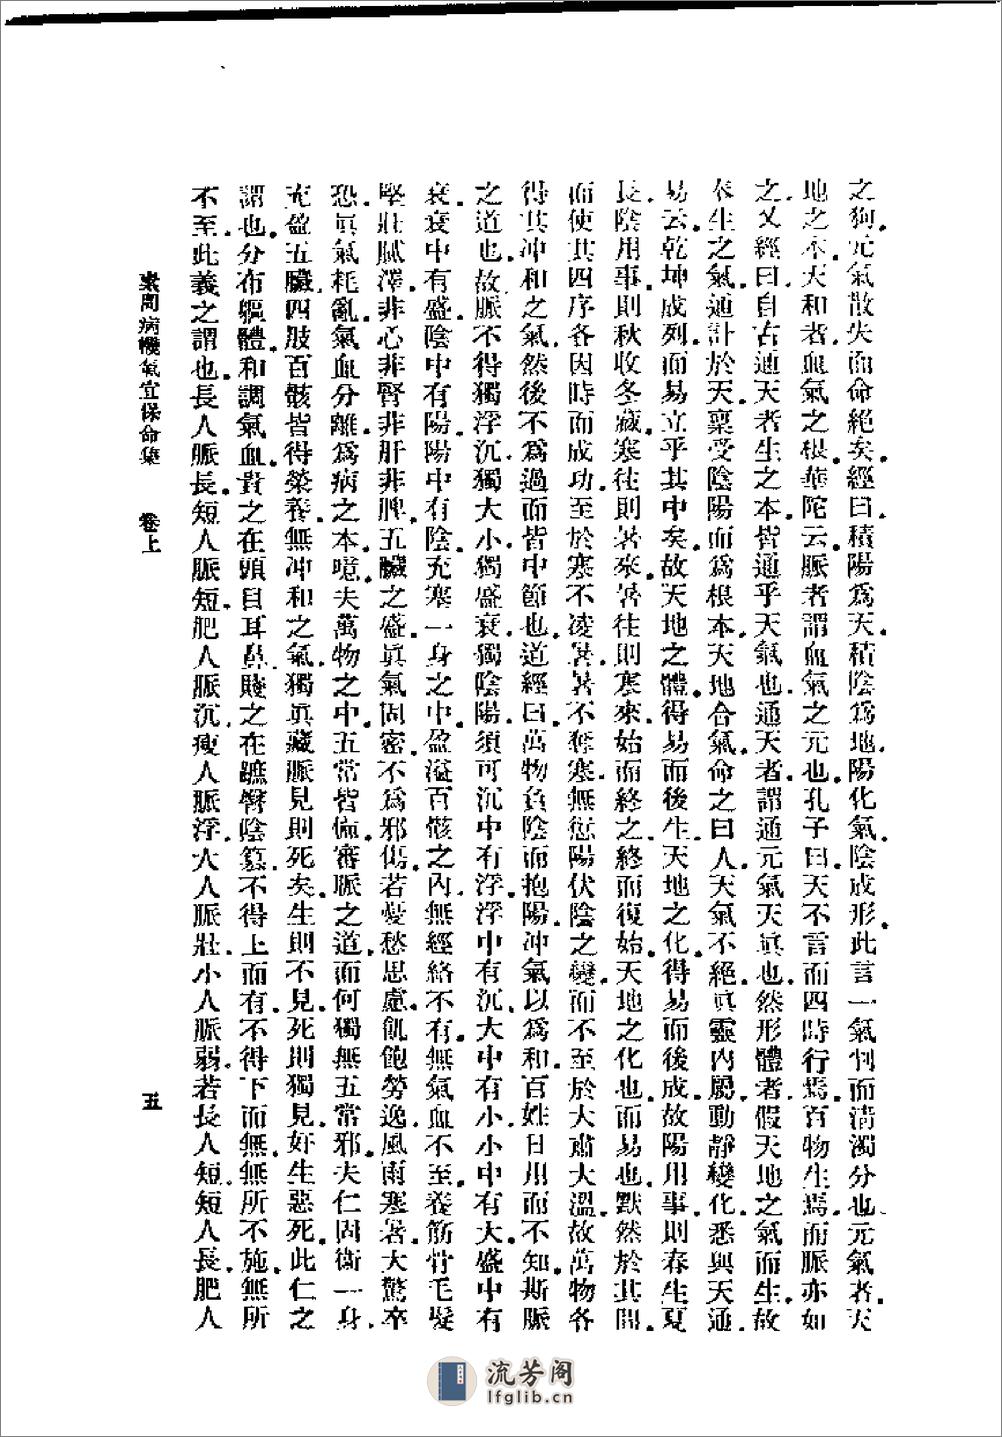 之狗.元氣散失而命絕矣.經曰.積陽爲天.積陰爲地.陽化氣.陰成形.此言一氣判而清濁分也.元氣者.天
地之本.天和者.血氣之根.華陀云.脈者謂血氣之元也.孔子曰.天不言而四時行焉.百物生焉.而脈亦如
之.又經曰.自古通天者.生之本.皆通乎天氣也.通天者.謂通元氣天眞也.然形體者.假天地之氣而生.故
奉生之氣.通計於天.稟受陰陽.而爲根本.天地合氣.命之曰人.天氣不絕.眞靈內屬.動靜變化.悉與天通.
易云.乾坤成列.而易立乎其中矣.故天地之體.得易而後生.天地之化.得易而後成.故陽用事.則春生夏
長.陰用事.則秋收冬藏.寒往則暑來.暑往則寒來.始而終之.終而復始.天地之化也.而易也.默然於其間.
而使其四序.各因時而成功.至於寒不凌暑.暑不奪寒.無愆陽伏陰之變.而不至於大肅大溫.故萬物各
得其冲和之氣.然後不爲過.而皆中節也.道經曰.萬物負陰而抱陽.冲氣以爲和.百姓日用而不知.斯脈
之道也.故脈不得獨浮沉.獨大小.獨盛衰.獨陰陽.須可沉中有浮.浮中有沉.大中有小.小中有大.盛中有
衰.衰中有盛.陰中有陽.陽中有陰.充塞一身之中.盈溢百骸之內.無經絡不有.無氣血不至.養筋骨毛髮.
堅壯膩澤.非心非腎.非肝非脾.五臟之盛.眞氣固密.不爲邪傷.若憂愁思慮.飢飽勞逸.風雨寒暑.大驚卒
恐.眞氣耗亂.氣血分離.爲病之本.噫.夫萬物之中.五常皆備.審脈之道.而何獨無五常邪.夫仁固衞一身.
充盈五臟.四肢百骸.皆得榮養.無冲和之氣.獨眞藏脈見則死矣.生則不見.死則獨見.好生惡死.此仁之
謂也.分布軀體.和調氣血.貴之在頭目耳鼻.賤之在蹠臀陰篡.不得上而有.不得下而無.無所不施.無所
不至.此義之謂也.長人脈長.短人脈短.肥人脈沉.瘦人脈浮.大人脈壯.小人脈弱.若長人短.短人長.肥人
素問病機氣宜保命集 卷上 五
流芳阁
lfglib.cn